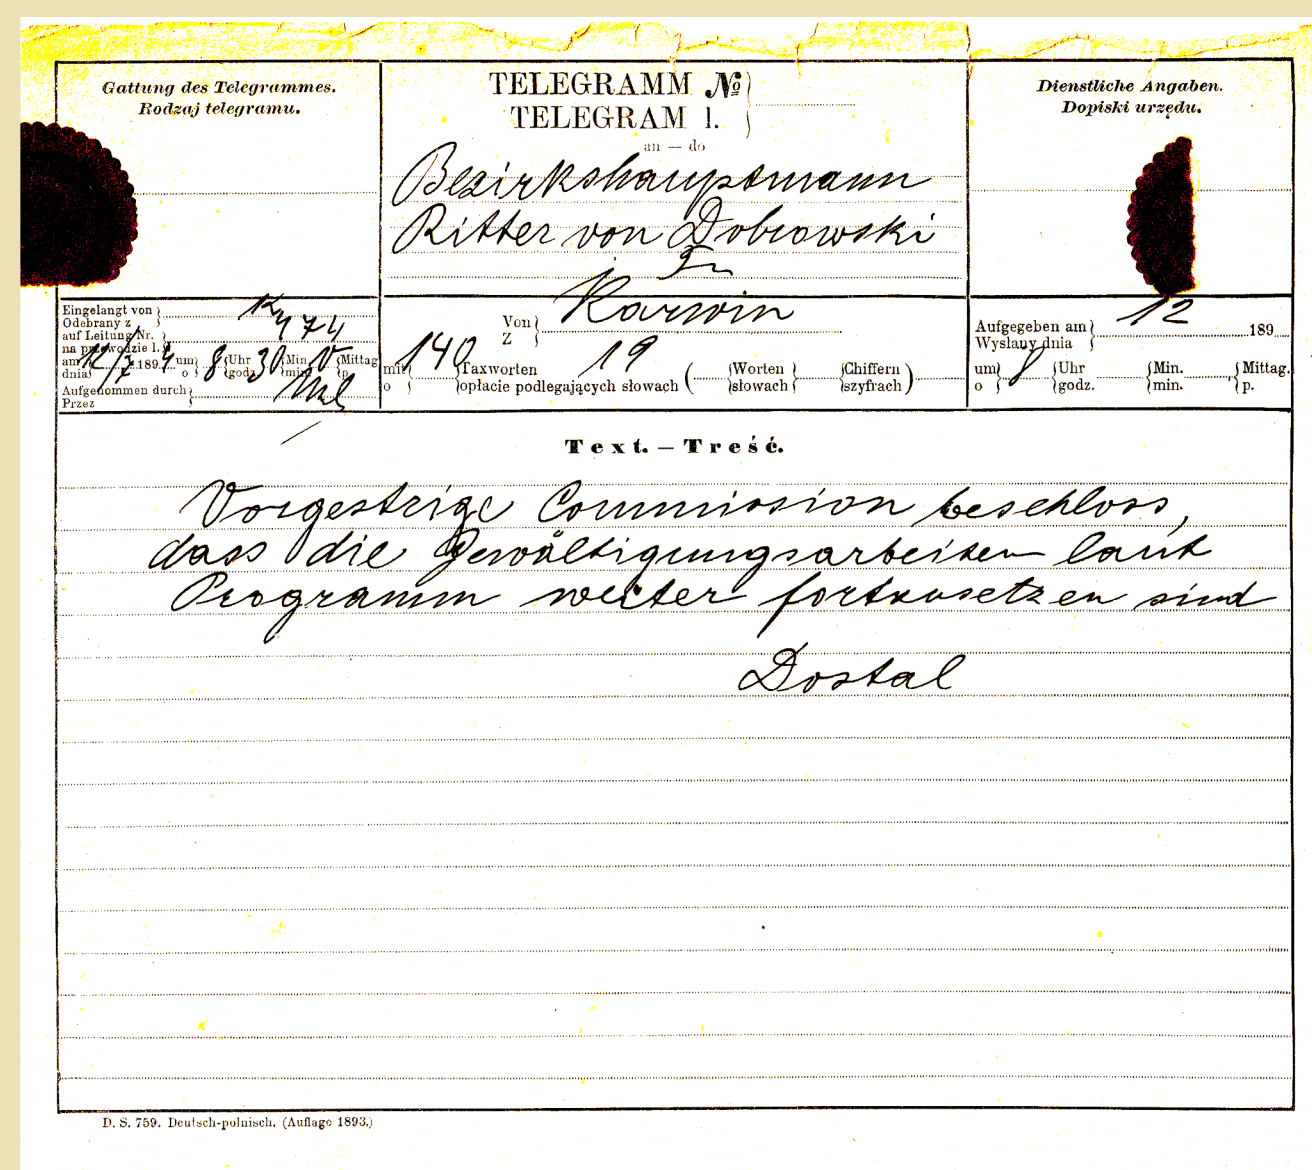 Gattung des Telegrammes.
Rodzaj telegramu.
TELEGRAMM №
TELEGRAM l.
an — do
Bezirkshauptmann
Ritter von Dobrowski
Dienstliche Angaben.
Dopiski urzędu.
Eingelangt von
Odebrany z
auf Leitung Nr. 474
na przewodzie l.
am 12/7 189 4 um 8 Uhr 30 Min. V Mittag
dnia o godz. min. p.
Aufgenommen durch
Przez
Von Karwin
Z
mit 140 Taxworten 19 ( Worten Chiffern )
o opłacie podlegających słowach słowach szyfrach
Aufgegeben am 12 189
Wysłany dnia
um 8 Uhr Min. Mittag.
o godz. min. p.
Text. — Treść.
Vorgestrige Commission beschloss,
dass die Gewältigungsarbeiten laut
Programm weiter fortzusetzen sind
Dostal
D. S. 759. Deutsch-polnisch. (Auflage 1893.)